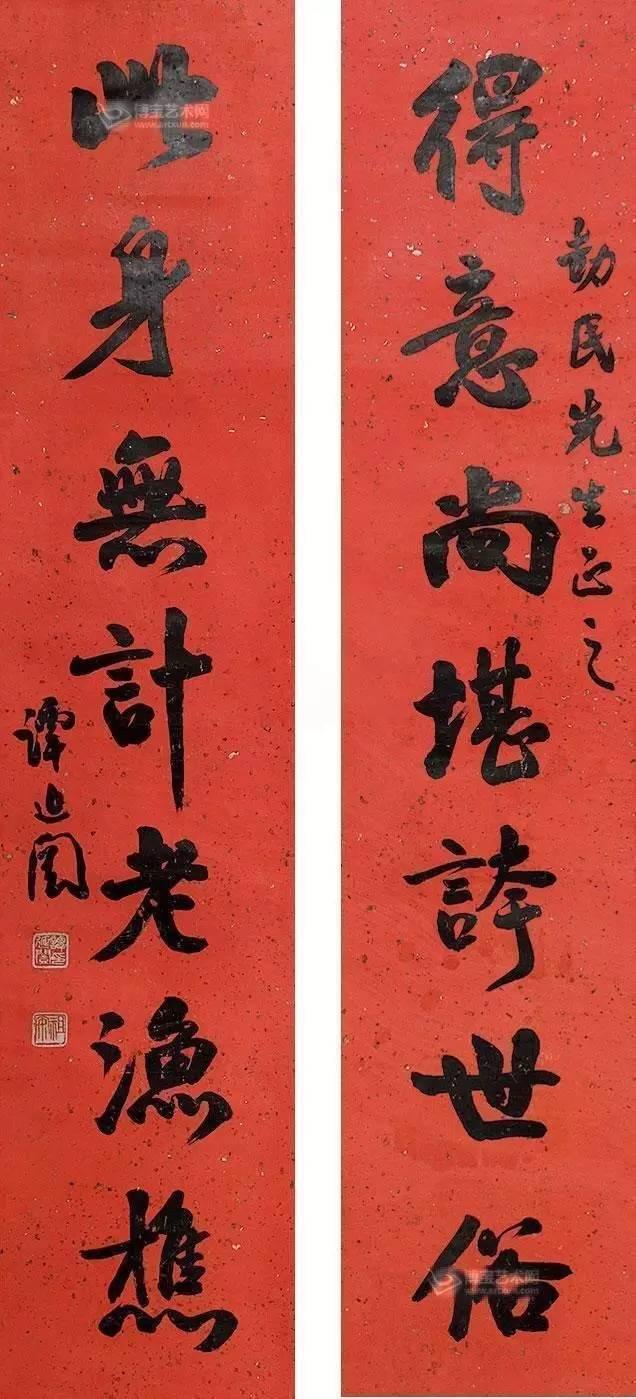 得意尚堪誇世俗
民先生正之
此身無計老漁樵
譚延闓
博宝艺术网
www.artxun.com
博宝艺术网
www.artxun.com